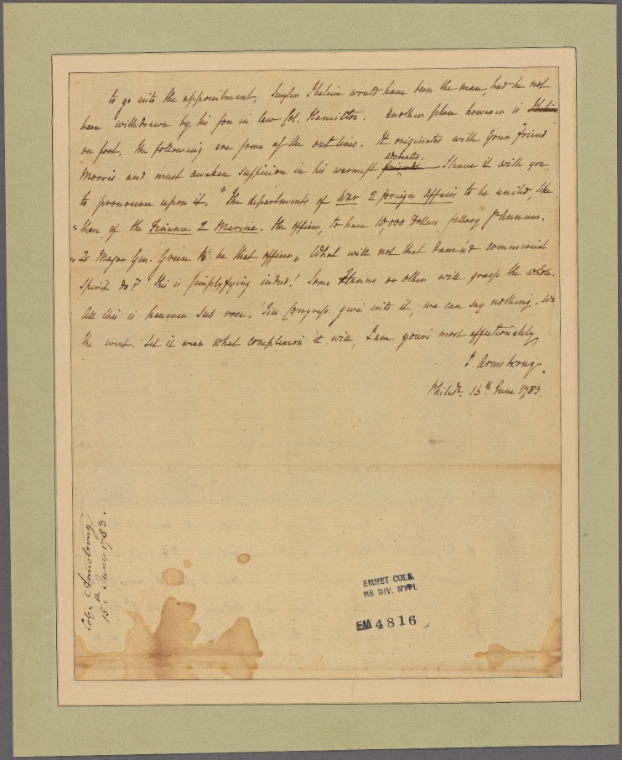 to go into the appointment. Snyler I believe would have been the man, had he not
been withdrawn by his son in law Col. Hamilton. another plan however is
on foot. the following are some of the out lines. It originates with your friend
Morris and must awaken suspicion in his warmest advocates. I leave it with you
to pronounce upon it. "The departments of War & foreign Affairs to be united, like
"those of the Finance & Marine. the officer, to have 10,000 Dollars sallery pr Annum.
"& Major Gen. Green to be that officer" What will not that damn'd commercial
spirit do? this is simplyfying indeed! Some Stanno or other will grasp the whole.
All this is however sub rosa. 'Till Congress give into it, we can say nothing. in
the event. Let it wear what complexion it will, I am yours most affectionately
J. Armstrong.
Philad. 15th June 1783.
Col. Armstrong
15th June 1783.
EMMET COLL.
MS DIV. NYPL
EM 4816